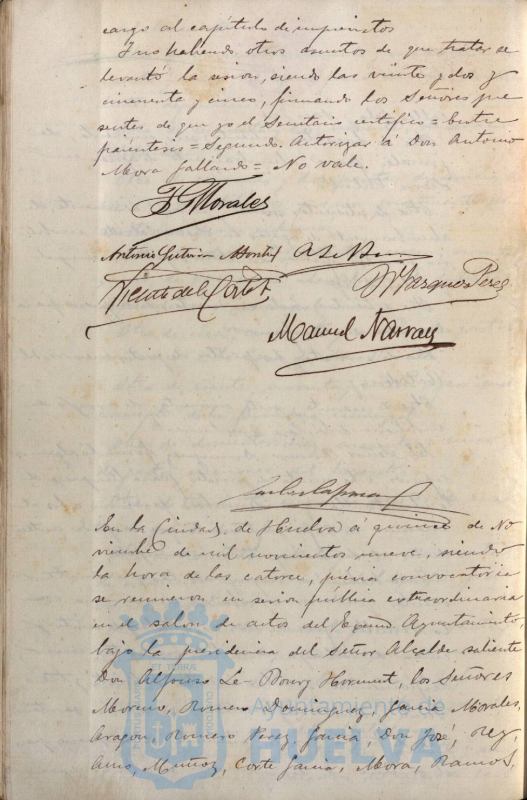 cargo al capítulo de imprevistos
Y no habiendo otros asuntos de que tratar se
levantó la sesion, siendo las veinte y dos y
cincuenta y cinco, firmando los Señores pre
sentes de que yo el Secretario certifico = Entre
paréntesis = Segundo. Autorizar á Don Antonio
Mora Gallardo = No vale.
Morales
Antonio
Vicente de la Corte
Vazquez Perez
Manuel Narvaez
En la Ciudad de Huelva a quince de No
viembre de mil novecientos nueve, siendo
la hora de las catorce, prévia convocatoria
se reunieron en sesion pública extraordinaria
en el salon de actos del Excmo Ayuntamiento,
bajo la presidencia del Señor Alcalde saliente
Don Alfonso Le-Bourg los Señores
Moreno, Romero Dominguez, Garcia Morales,
Aragon, Romero Perez, Garcia, Don José, Rey,
Muñoz, Corte Garcia, Mora, Ramos,
Ayuntamiento de
HUELVA